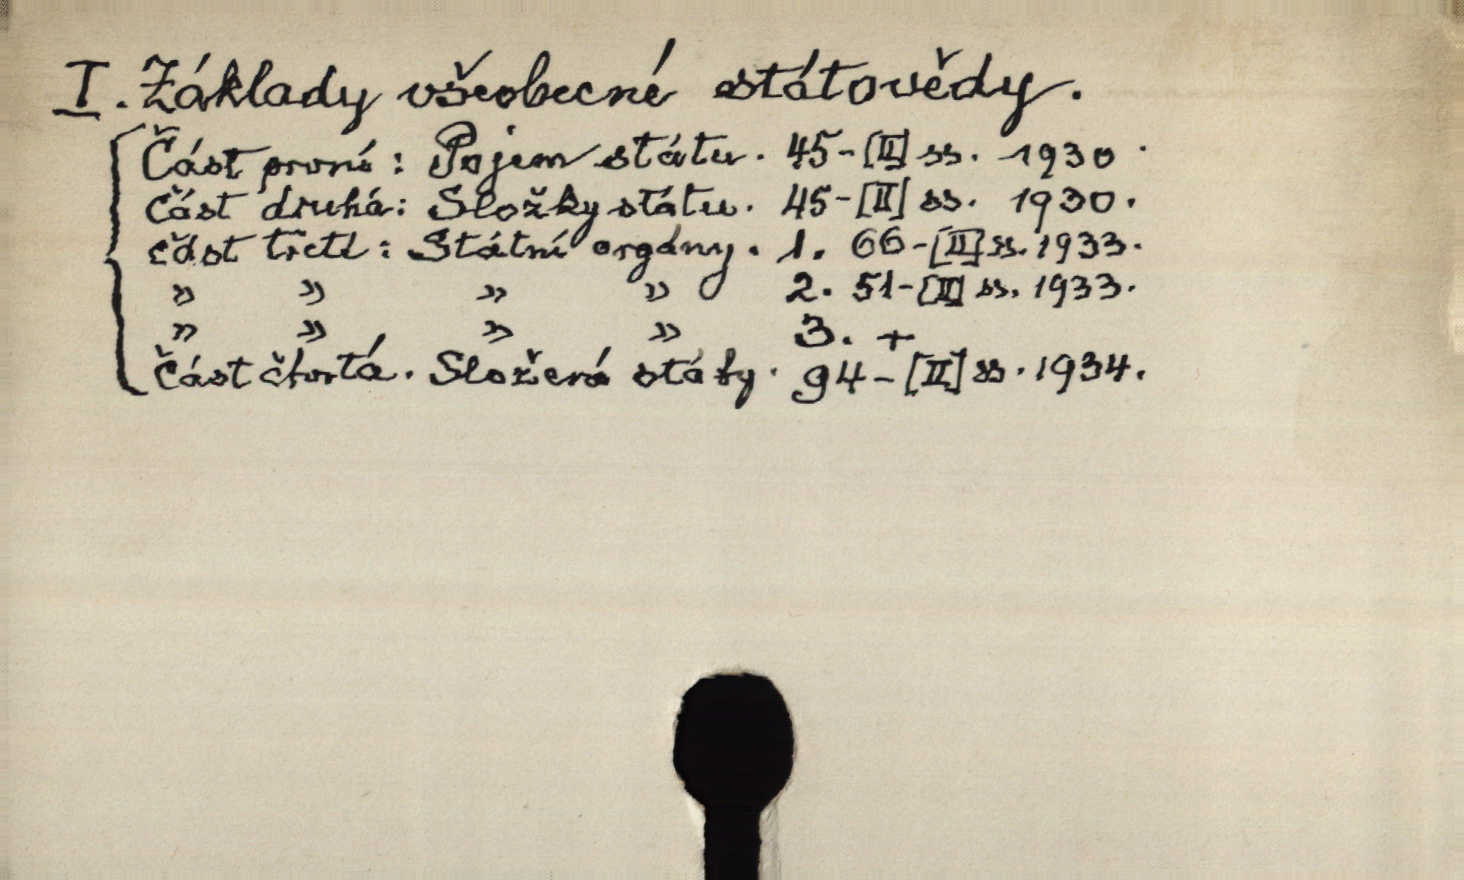 I. Základy všeobecné státovědy.
Část první: Pojem státu. 45-[II] ss. 1930.
Část druhá: Složky státu. 45-[II] ss. 1930.
část třetí: Státní orgány. 1. 66-[II] ss. 1933.
" " " " 2. 51-[II] ss. 1933.
" " " " 3. +
Část čtvrtá. Složené státy. 94-[II] ss. 1934.